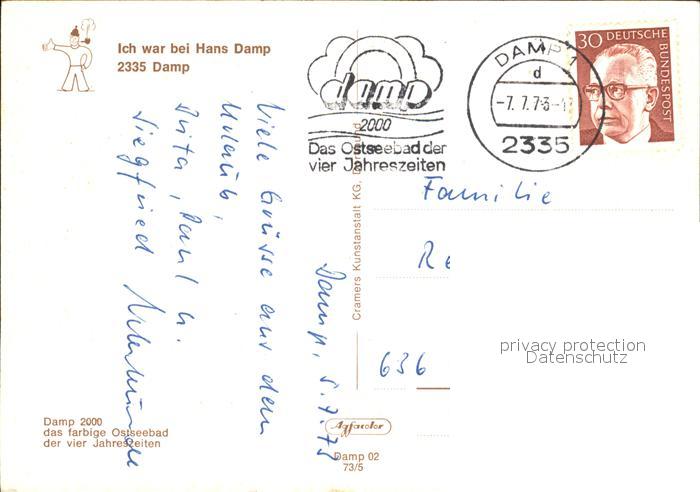 Ich war bei Hans Damp
2335 Damp
damp
2000
Das Ostseebad der
vier Jahreszeiten
DAMP 1
d
-7.7.73-17
2335
30 DEUTSCHE
BUNDESPOST
Damp, 5.7.73
Viele Grüsse aus dem
Urlaub,
Paul u.
Siegfried
Familie
Re
636
Cramers Kunstanstalt KG, Dortmund
privacy protection
Datenschutz
Damp 2000
das farbige Ostseebad
der vier Jahreszeiten
Agfacolor
Damp 02
73/5